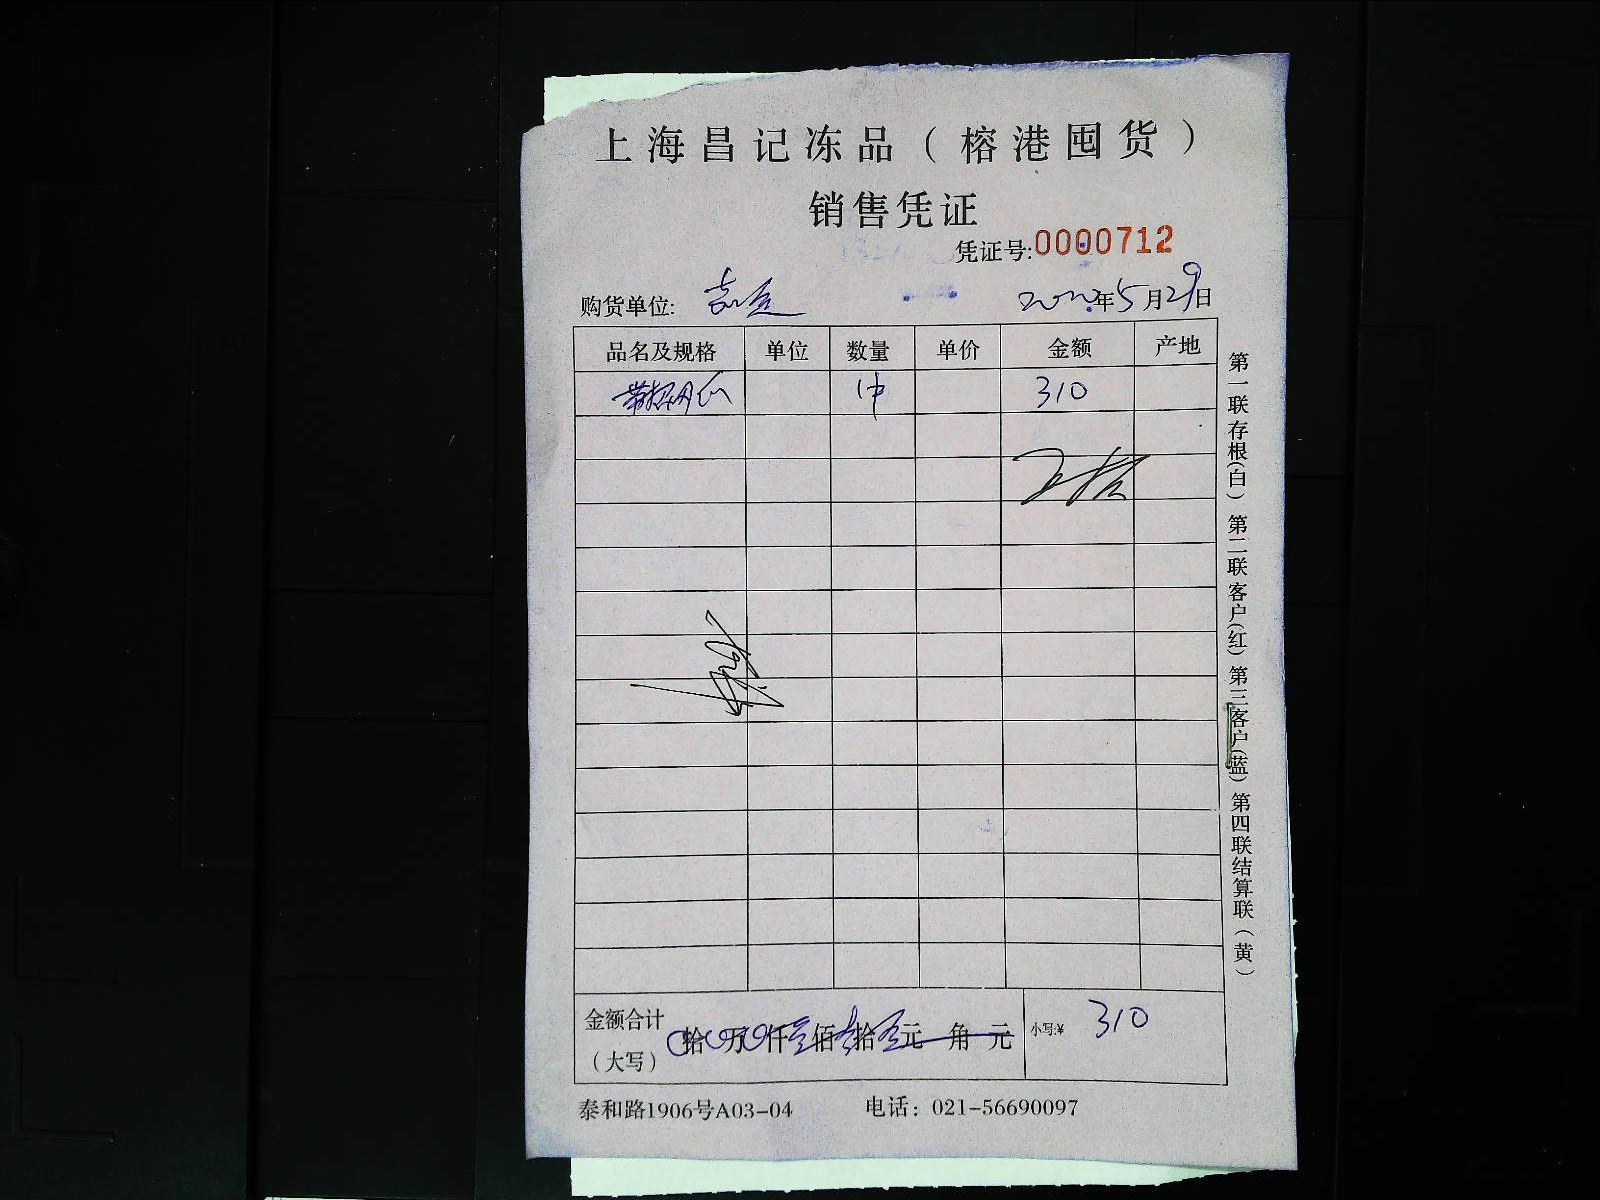 上海昌记冻品（榕港囤货）
销售凭证
凭证号:0000712
购货单位: 2022年5月29日
品名及规格 单位 数量 单价 金额 产地
1件 310
金额合计（大写） 拾 万 仟 佰 拾 元 角 元 小写:¥ 310
泰和路1906号A03-04 电话：021-56690097
第一联存根(白) 第二联客户(红) 第三客户(蓝) 第四联结算联(黄)